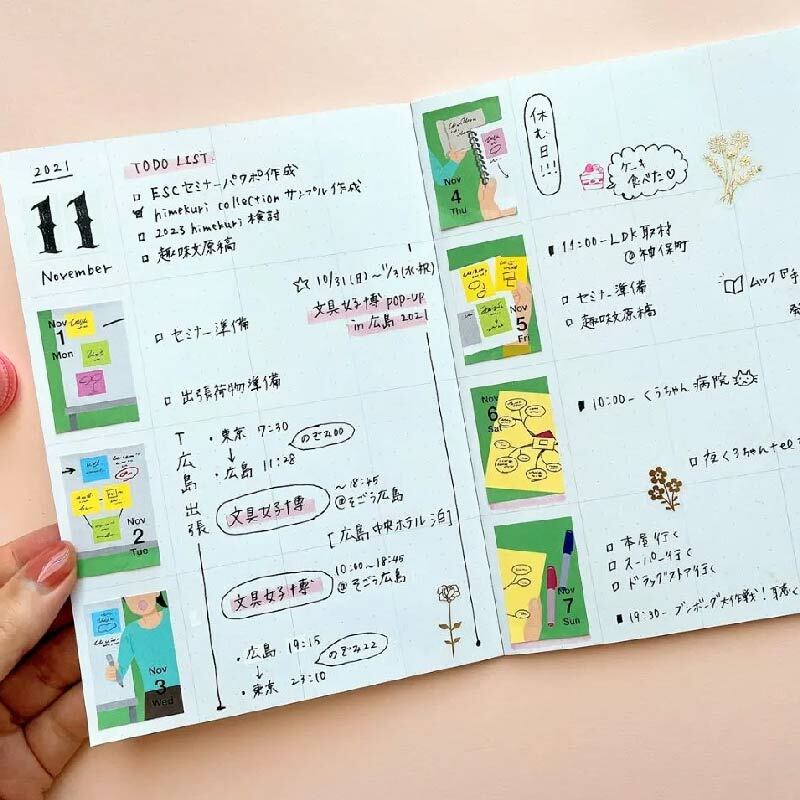 2021
11
November
TODO LIST
□ ESCセミナーパワポ作成
☑ himekuri collection サンプル作成
□ 2023 himekuri 検討
□ 趣味文原稿
☆ 10/31(日)〜11/3(水・祝)
文具女子博 POP-UP
in 広島 2021
Nov
1
Mon
□ セミナー準備
□ 出張荷物準備
Nov
2
Tue
広島出張
・東京 7:30
のぞみ00
↓
・広島 11:28
文具女子博
〜18:45
@そごう広島
[広島中央ホテル泊]
Nov
3
Wed
文具女子博
10:00〜18:45
@そごう広島
・広島 19:15
のぞみ22
↓
・東京 23:10
Nov
4
Thu
休む日!!!
ケーキ
食べた♡
Nov
5
Fri
■ 11:00- LDK取材
@神保町
□ セミナー準備
□ 趣味文原稿
ムック『手
Nov
6
Sat
■ 10:00- くうちゃん病院
Nov
7
Sun
□ 本屋行く
□ スーパー行く
□ ドラッグストア行く
■ 19:30- ブンボーグ大作戦!